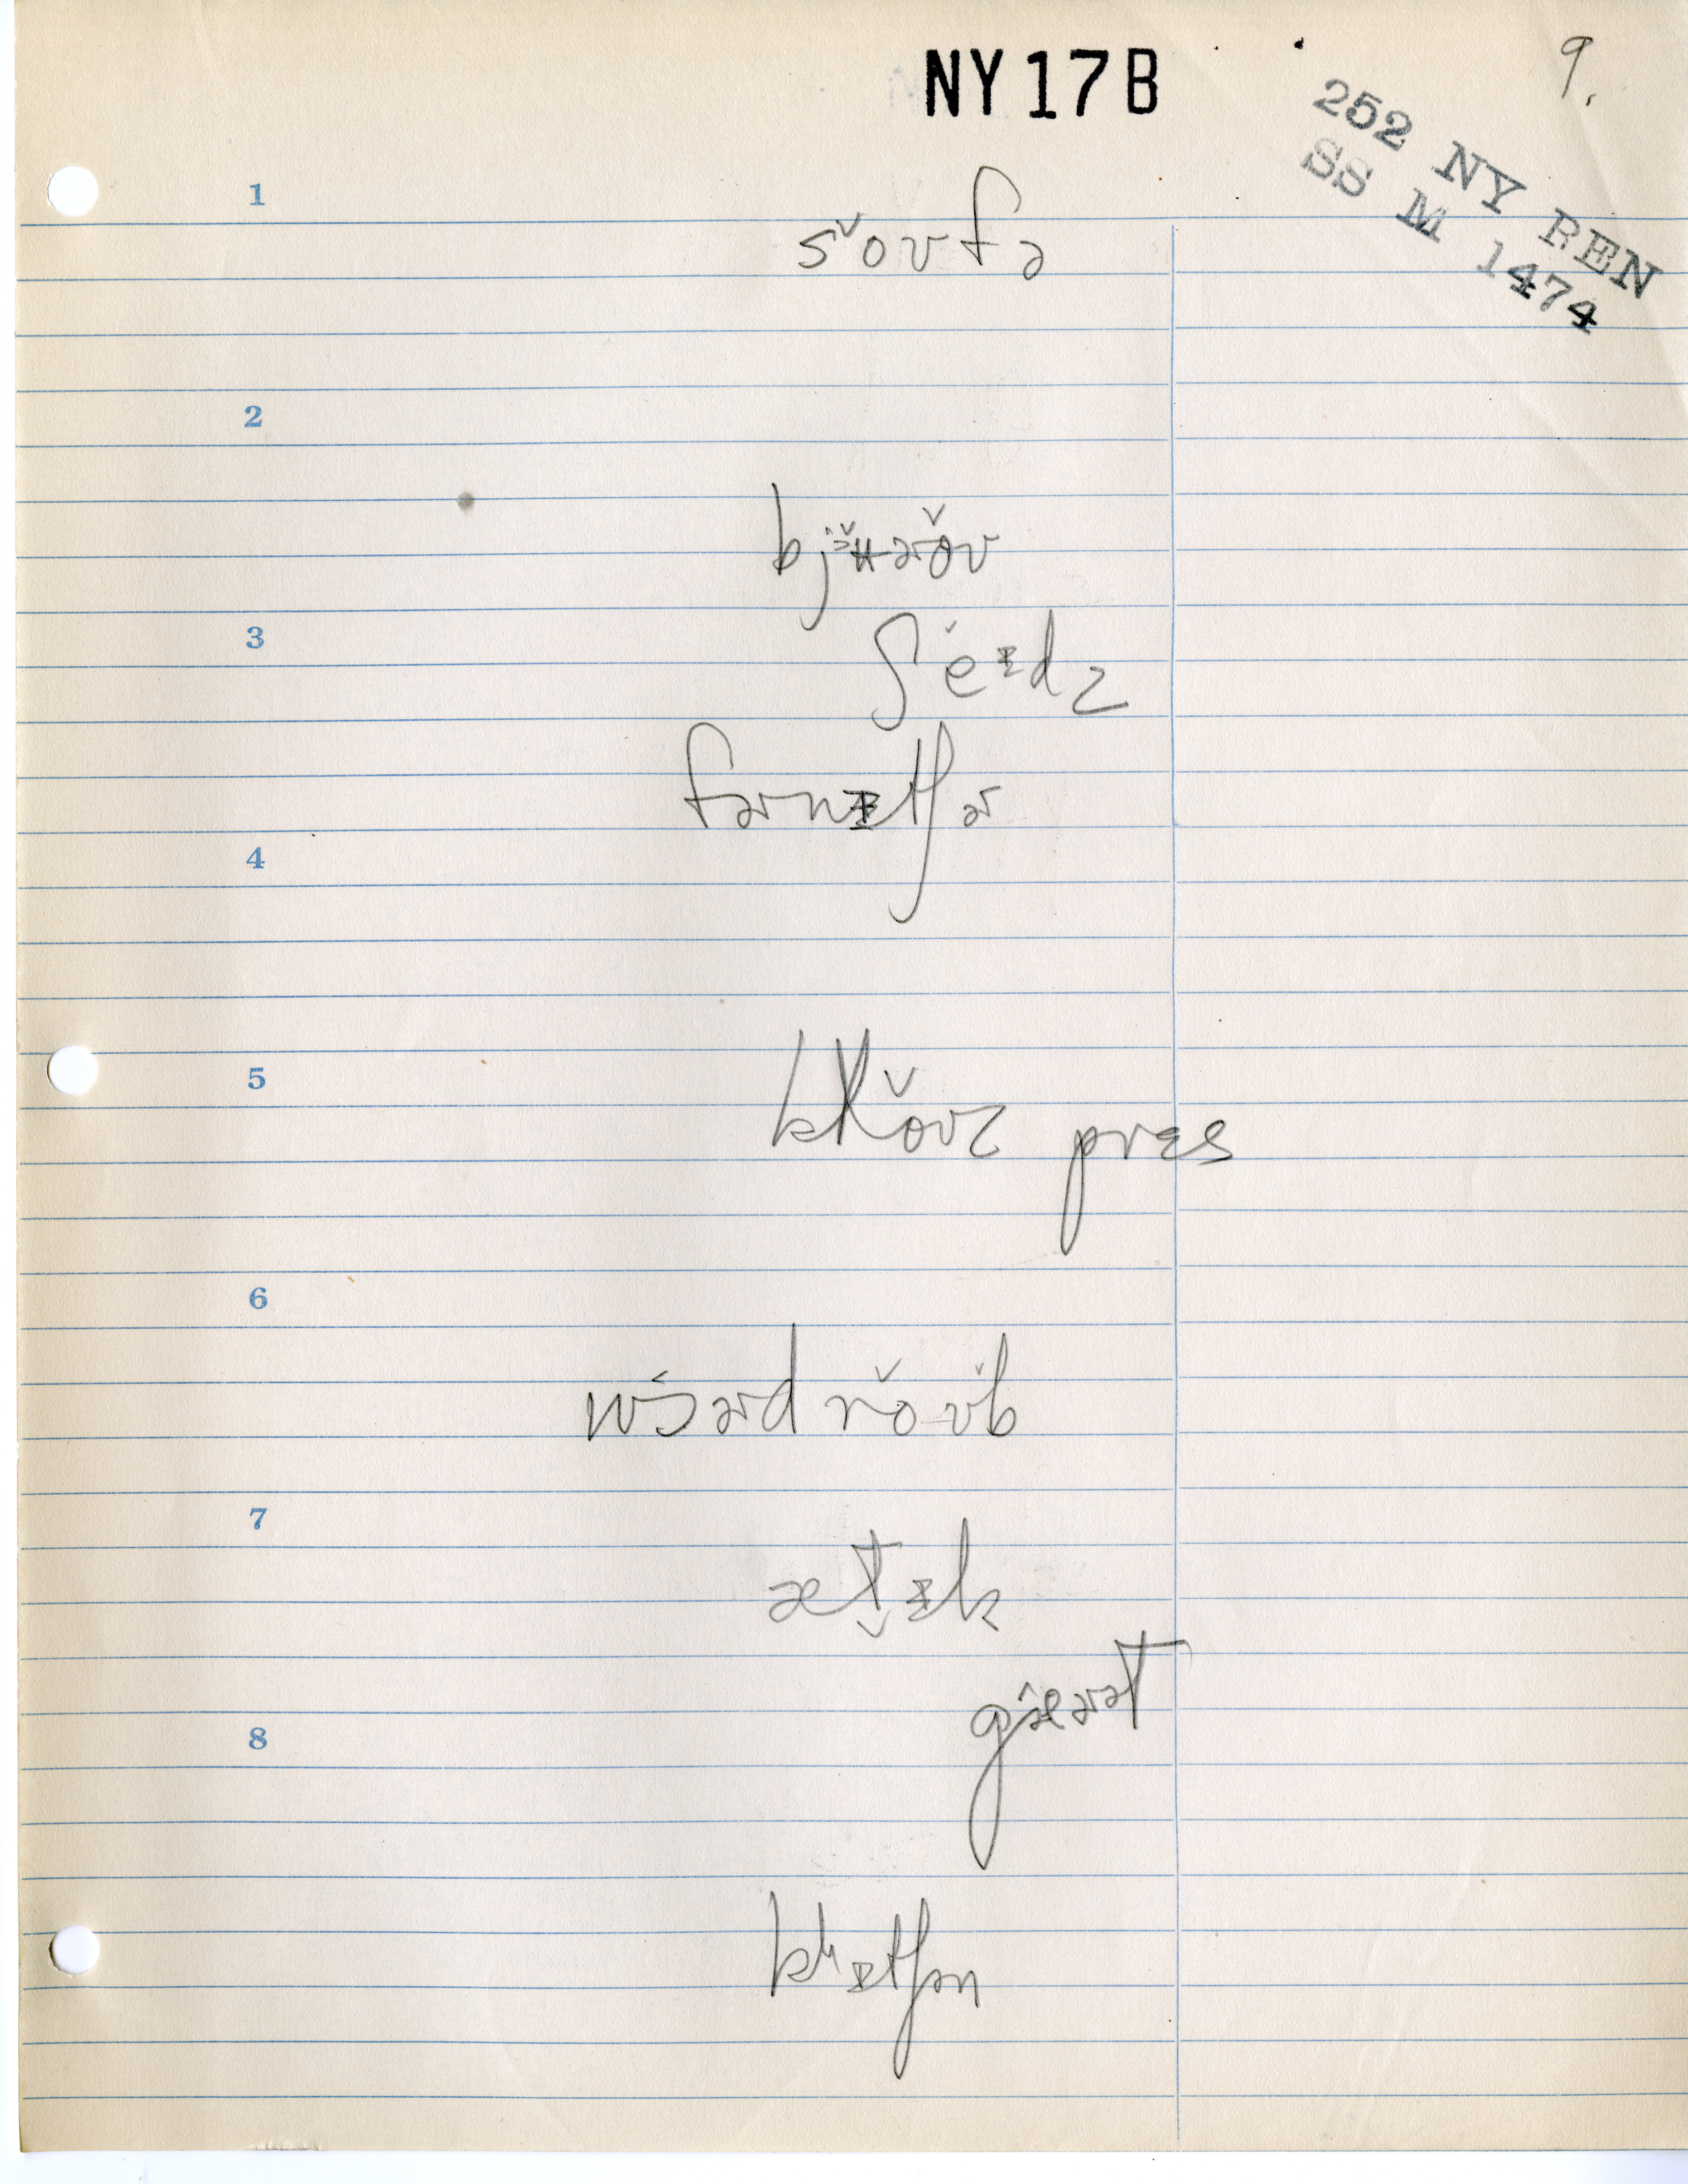 NY17B
9.
252 NY REN
SS M 1474
1
soʊfə
2
bjʉɚoʊ
3
ʃeɪdz
fɚnɪtʃɚ
4
5
kloʊz pres
6
wɔɚdroʊb
7
ætɪk
gæɚət
8
kɪtʃən